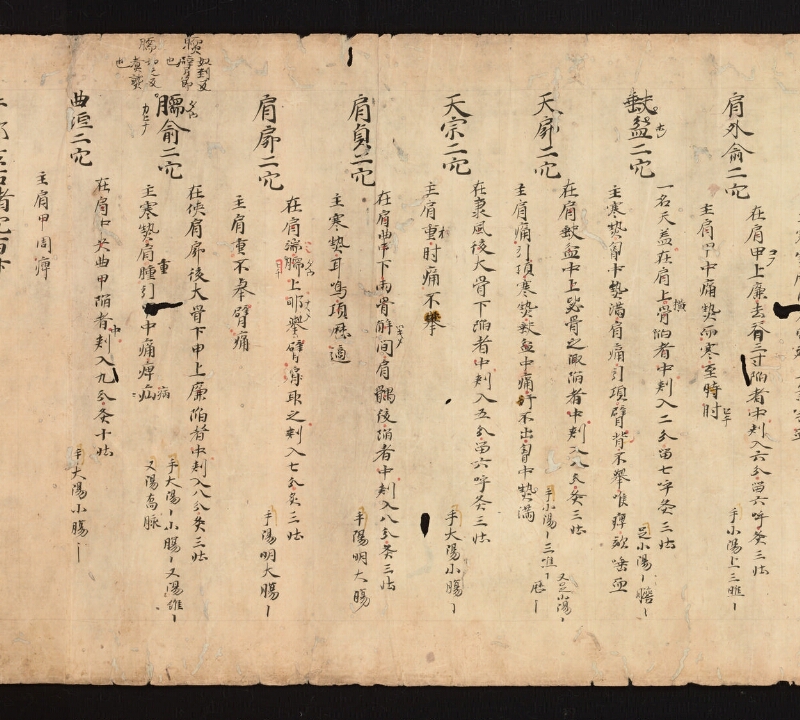 肩外兪二穴
在肩甲上廉去脊三寸陷者中刾入六分留六呼灸三壮
主肩甲中痛熱而寒至時肘
手小陽上三瞧ー
缺盆二穴
一名天盖在肩上横骨陷者中刾入二分留七呼灸三壮
主寒熱匈中熱満肩痛引項臂背不擧喉痺欬唾血
足小陽ー膽ー
天廓二穴
在肩缺盆中上毖骨之陬陷者中刾入八分灸三壮
主肩痛引項寒熱缺盆中痛汗不出匈中熱満
手小陽ー三瞧ー
又足小陽ー
天宗二穴
在秉風後大骨下陷者中刾入五分留六呼灸三壮
主肩重肘痛不擧
手大陽小膓ー
肩貞二穴
在肩曲甲下兩骨解間肩髃後陷者中刾入八分灸三壮
主寒熱耳鳴項歴適
手陽明大膓
肩廓二穴
在肩端臑上耶擧臂肩取之刾入七分灸三壮
主肩重不擧臂痛
手陽明大膓ー
臑兪二穴
在侠肩廓後大骨下甲上廉陷者中刾入八分灸三壮
主寒熱肩腫引 中痛痺
手大陽ー小膓ー又陽維ー
又陽高脉
曲垣二穴
在肩中央曲甲陷者中刾入九分灸十壮
主肩甲周痺
手大陽小膓ー